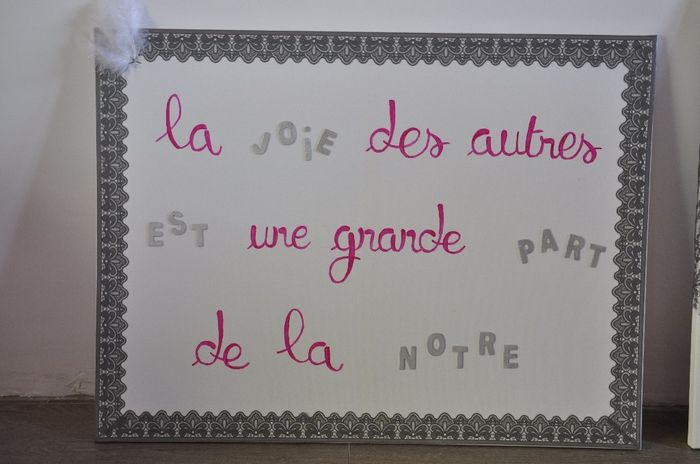 la JOiE des autres
EST une grande PART
de la NOTRE